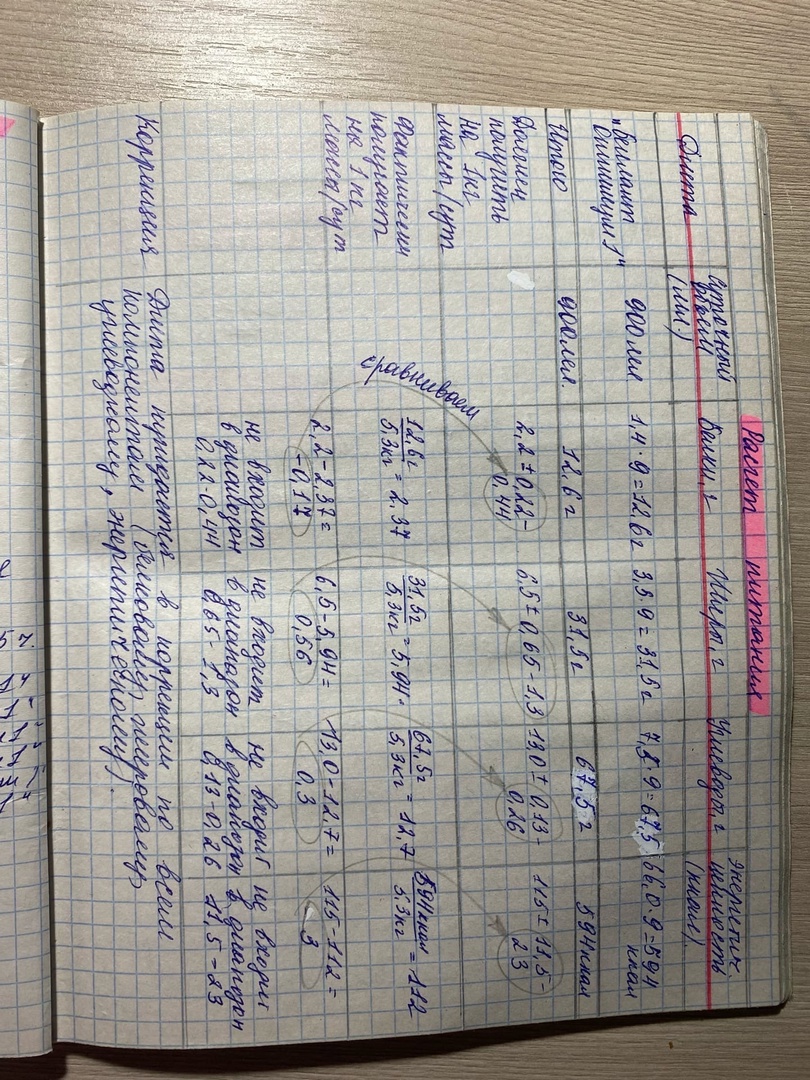 Расчет питания
Диета
Суточный
объем
(мл.)
Белки, г
Жиры, г
Углеводы, г
Энергетич.
ценность
(ккал)
"Беллакт
Оптимум 1"
900 мл
1,4·9=12,6г
3,5·9=31,5г
7,5·9=67,5
66,0·9=594
ккал
Итого
900мл.
12,6г
31,5г
67,5г
594ккал
Должен
получить
на 1кг
масс/сут
2,2±0,22-
0,44
6,5±0,65-1,3
13,0±0,13-
0,26
115±11,5-
23
сравниваем
Фактически
получает
на 1 кг
массы/сут
12,6г
5,3кг = 2,37
31,5г
5,3кг = 5,94.
67,5г
5,3кг = 12,7
594ккал
5,3кг = 112
2,2-2,37=
-0,17
6,5-5,94=
0,56
13,0-12,7=
0,3
115-112=
3
не входит
в диапазон
0,22-0,44
не входит
в диапазон
0,65-1,3
не входит
в диапазон
0,13-0,26
не входит
в диапазон
11,5-23
Коррекция
Диета нуждается в коррекции по всем
компонентам (белковому, жировому,
углеводному, энергетическому).